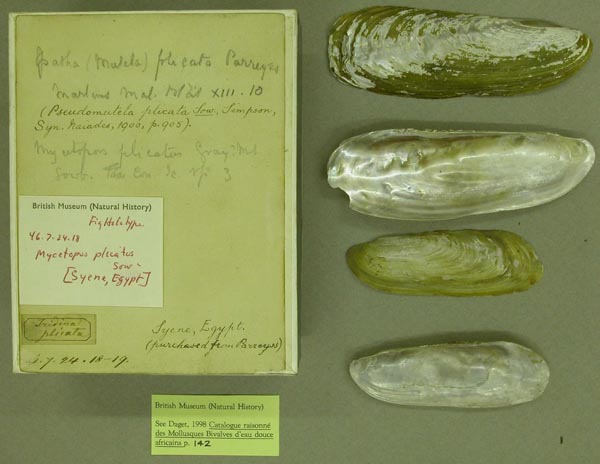 Spatha (Mutela) plicata Parreyss
Martens Mal. Blät XIII. 10
(Pseudomutela plicata Sow., Simpson,
Syn. Naiades, 1900, p. 905).
Mycetopus plicatus Gray. Ms
Sowb. Con. Ic. 3
British Museum (Natural History)
Fig Holotype
46.7.24.18
Mycetopus plicatus
Sow.
[Syene, Egypt]
Iridina
plicata
Syene, Egypt.
(purchased from Parreyss)
6.7.24.18-19.
British Museum (Natural History)
See Daget, 1998 Catalogue raisonné
des Mollusques Bivalves d'eau douce
africains p. 142